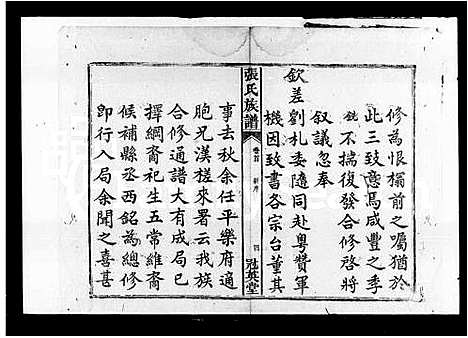 修為恨獨前之囑猶於
此三致意焉咸豐之季
銑不揣復發合修啓將
叙議忽奉
欽差劉札委隨同赴粵贊軍
機因致書各宗台董其
張氏族譜
卷首
新序
四
冠英堂
事去秋余任平樂府適
胞兄漢槎來署云我族
合修通譜大有成局已
擇綱裔祀生五常維裔
候補縣丞西銘為總修
即行入局余聞之喜甚